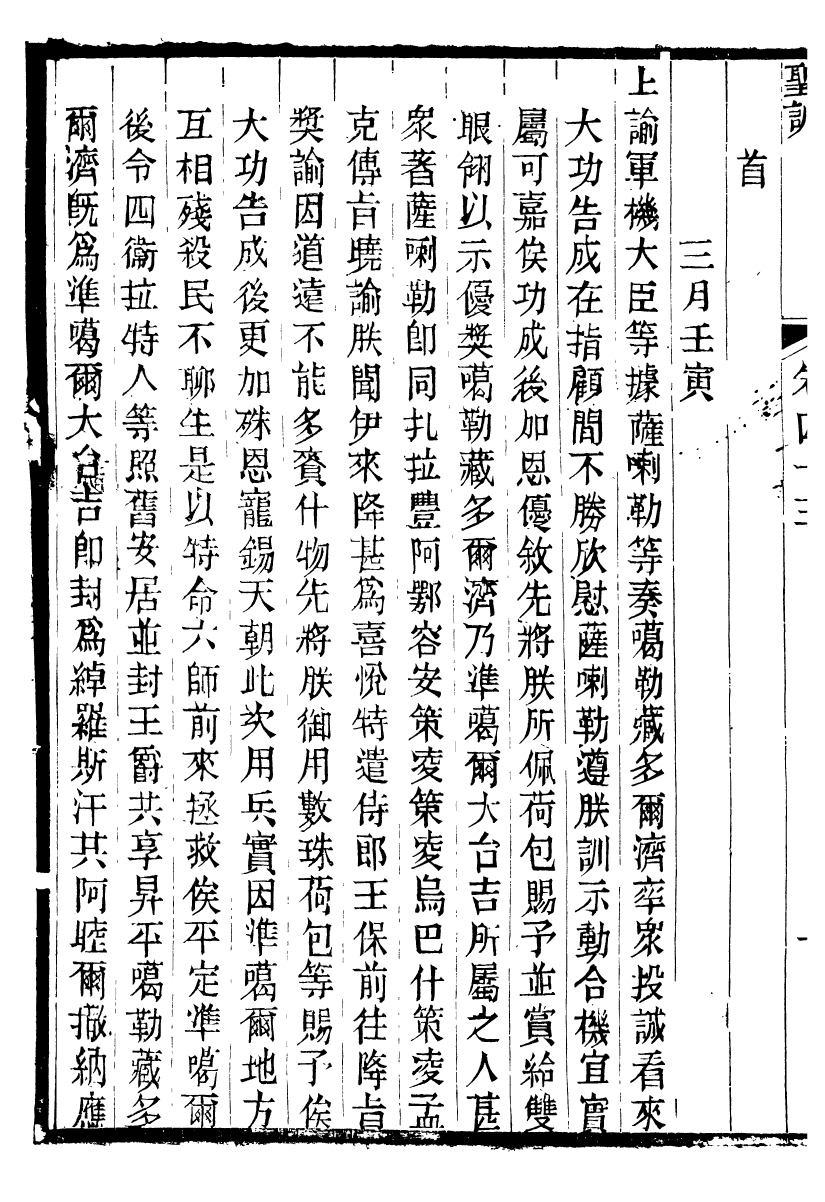 聖訓
首
三月壬寅
上諭軍機大臣等據薩喇勒等奏噶勒藏多爾濟率衆投誠看來
大功告成在指顧間不勝欣慰薩喇勒遵朕訓示動合機宜實
屬可嘉俟功成後加恩優敘先將朕所佩荷包賜予並賞給雙
眼翎以示優獎噶勒藏多爾濟乃準噶爾大台吉所屬之人甚
衆著薩喇勒即同扎拉豐阿鄂容安策淩策淩烏巴什策淩孟
克傳旨曉諭朕聞伊來降甚爲喜悅特遣侍郎王保前往降旨
獎諭因道遠不能多賫什物先將朕御用數珠荷包等賜予俟
大功告成後更加殊恩寵錫天朝此次用兵實因準噶爾地方
互相殘殺民不聊生是以特命六師前來拯救俟平定準噶爾
後令四衞拉特人等照舊安居並封王爵共享昇平噶勒藏多
爾濟旣爲準噶爾大台吉即封爲綽羅斯汗其阿睦爾撒納應